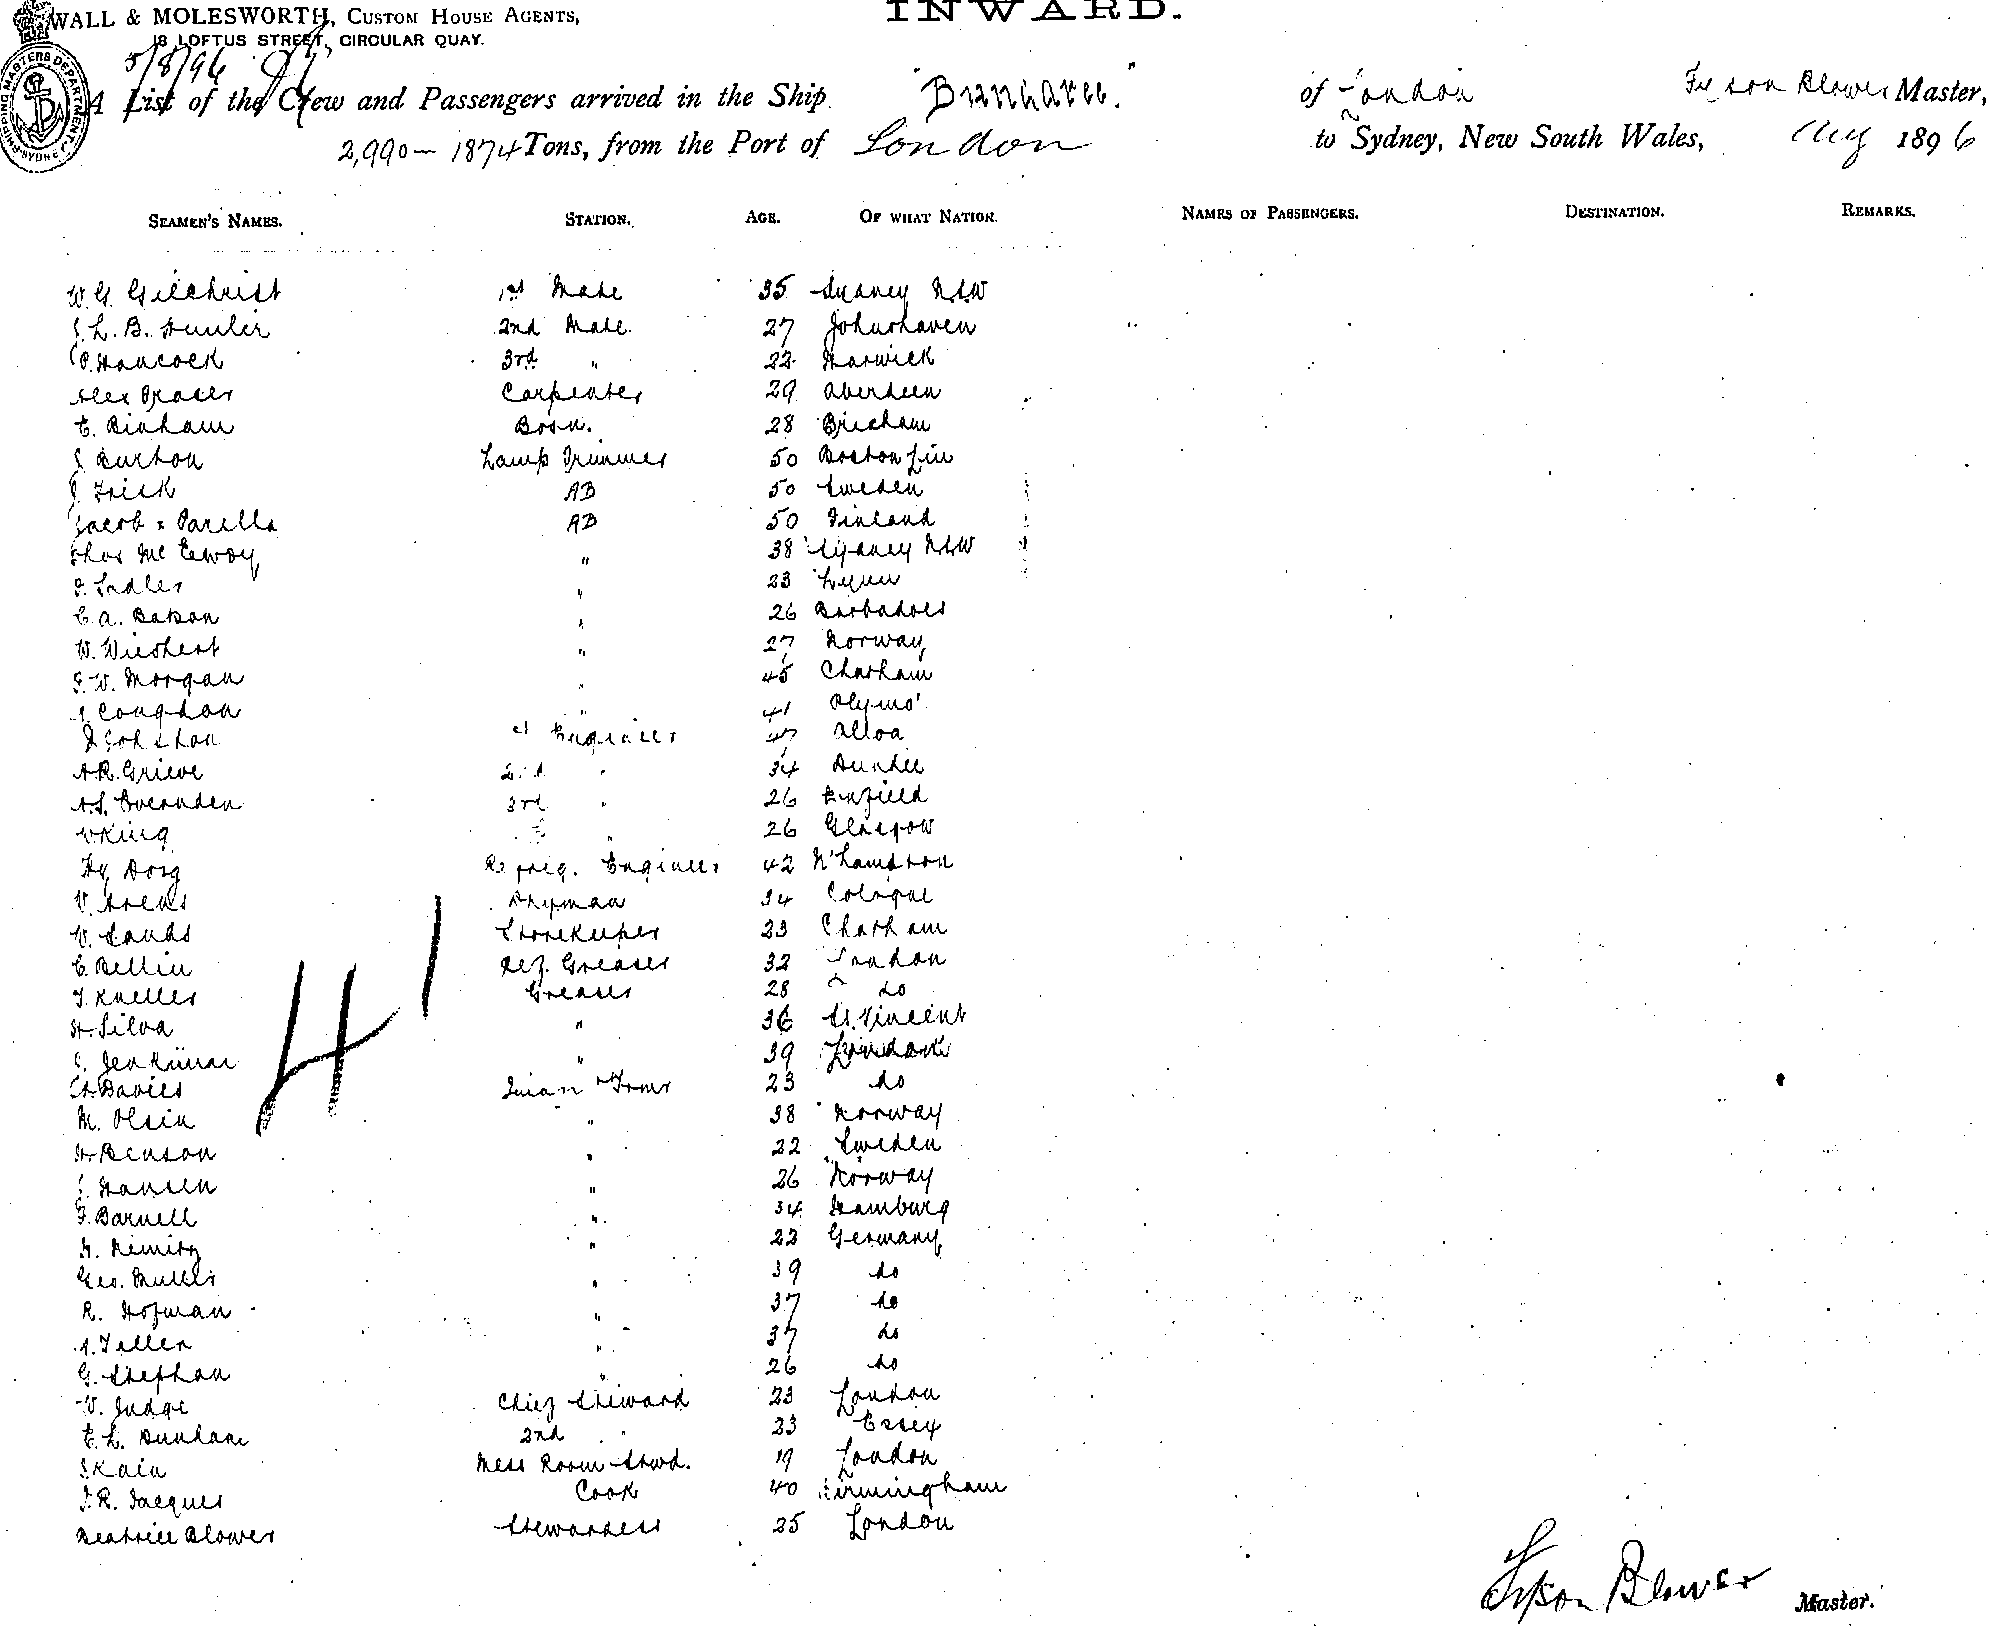 WALL & MOLESWORTH, CUSTOM HOUSE AGENTS,
18 LOFTUS STREET, CIRCULAR QUAY.
INWARD.
5/8/96
A List of the Crew and Passengers arrived in the Ship of London Master,
2,990 - 1874 Tons, from the Port of London to Sydney, New South Wales, Aug 1896
SEAMEN'S NAMES. STATION. AGE. OF WHAT NATION. NAMES OF PASSENGERS. DESTINATION. REMARKS.
W. G. Gilchrist 1st Mate 35 Sydney NSW
L. B. Hunter 2nd Mate 27 Johnshaven
P. Hancock 3rd " 22 Harwick
Alex Fraser Carpenter 29 Aberdeen
E. Binham Bosn. 28 Brixham
J Burton Lamp Trimmer 50 Boston Lin
Frick AB 50 Sweden
Jacob Parella AB 50 Finland
Thos McEwoy " 38 Sydney NSW
Sadler " 23 Lynn
C. A. Batson " 26 Barbadoes
W. Wieshert " 27 Norway
W. Morgan " 45 Chatham
Congdon " 41 Plymo'
Johnston 1st Engineer 47 Alloa
A R. Grieve 2nd " 34 Dundee
A. S. Overnden 3rd " 26 Enfield
W King " 26 Glasgow
Hy Dorg Refrig. Engineer 42 N'hampton
V. Arens 34 Cologne
W. Sands Storekeeper 23 Chatham
C. Bellin Ref. Greaser 32 London
Kneller Greaser 28 do
H. Silva " 36 St. Vincent
Jenkinson " 39 London
Davies 23 do
M. Olsen " 38 Norway
H. Benson " 22 Sweden
Hansen " 26 Norway
F. Barnell " 34 Hamburg
" 22 Germany
Geo. Muller " 39 do
R. Hofman " 37 do
A. Teller " 37 do
G. Stephan " 26 do
W. Judge Chief Steward 23 London
E. L. Dunham 2nd " 23 Essex
J Kain Mess Room Stwd. 19 London
J. R. Jacques Cook 40 Birmingham
Beatrice Blower Stewardess 25 London
41
Blower Master.